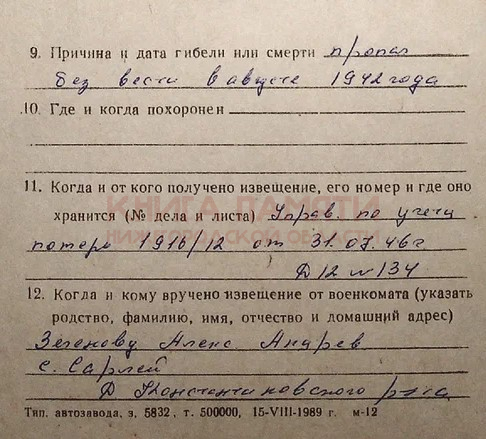 9. Причина и дата гибели или смерти пропал
без вести в августе 1942 года
10. Где и когда похоронен
11. Когда и от кого получено извещение, его номер и где оно
хранится (№ дела и листа) Управ. по учету
КНИГА ПАМЯТИ
НИЖЕГОРОДСКОЙ ОБЛАСТИ
потерь 1916/12 от 31.07.46г
Д 12 л 134
12. Когда и кому вручено извещение от военкомата (указать
родство, фамилию, имя, отчество и домашний адрес)
Алекс Андрев
с. Сарлей
Д Константиновского р-на
Тип. автозавода, з. 5832, т. 500000, 15-VIII-1989 г. м-12